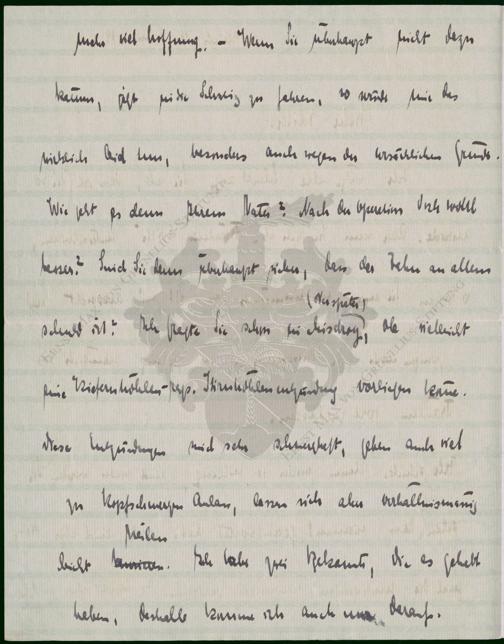 mehr viel Hoffnung. – Wenn Sie überhaupt nicht dazu
kämen, jetzt in die Schweiz zu fahren, so würde mir das
wirklich leid tun, besonders auch wegen des ursächlichen Grunds.
Wie geht es denn Ihrem Vater? Nach der Operation doch wohl
besser? Sind Sie denn überhaupt sicher, dass der Zahn an allem
schuld ist? Ich fragte Sie schon in Misdroy, ob vielleicht
eine Kieferhöhlen- resp. Stirnhöhlenentzündung vorliegen könne.
Diese Entzündungen sind sehr schmerzhaft, geben auch viel
zu Kopfschmerzen Anlass, lassen sich aber verhältnismässig
leicht heilen. Ich habe zwei Bekannte, die es gehabt
haben, deshalb komme ich auch nur darauf.